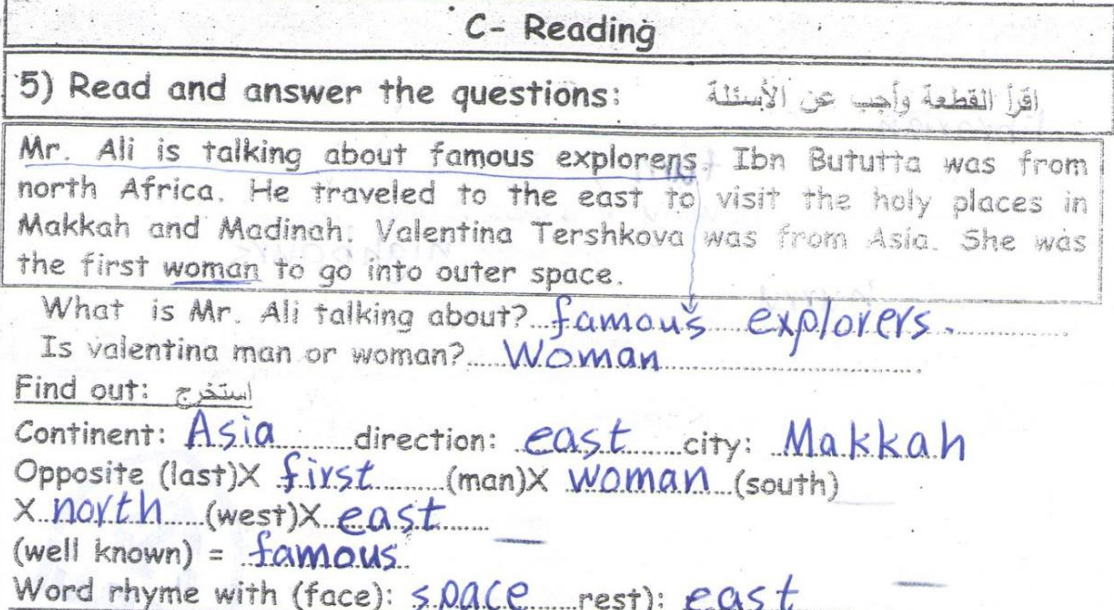 C- Reading
5) Read and answer the questions: اقرأ القطعة وأجب عن الأسئلة
Mr. Ali is talking about famous explorens. Ibn Bututta was from
north Africa. He traveled to the east to visit the holy places in
Makkah and Madinah. Valentina Tershkova was from Asia. She was
the first woman to go into outer space.
What is Mr. Ali talking about? famous explorers.
Is valentina man or woman? Woman
Find out: استخرج
Continent: Asia direction: east city: Makkah
Opposite (last)X first (man)X woman (south)
X north (west)X east
(well known) = famous
Word rhyme with (face): space rest): east